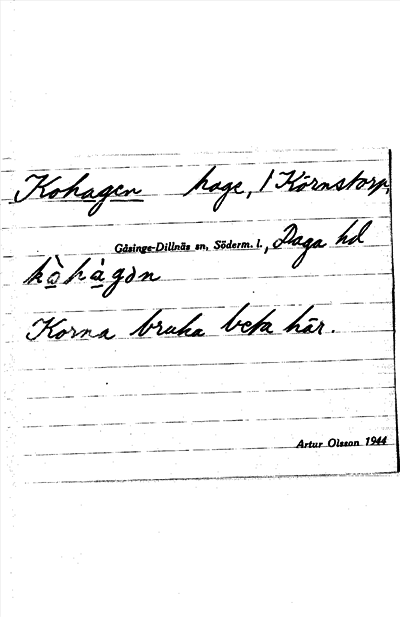 Kohagen hage, 1 Körnstorp,
Gåsinge-Dillnäs sn, Söderm. l., Daga hd
kò̱hà̱gən
Korna bruka beta här.
Artur Olsson 1944